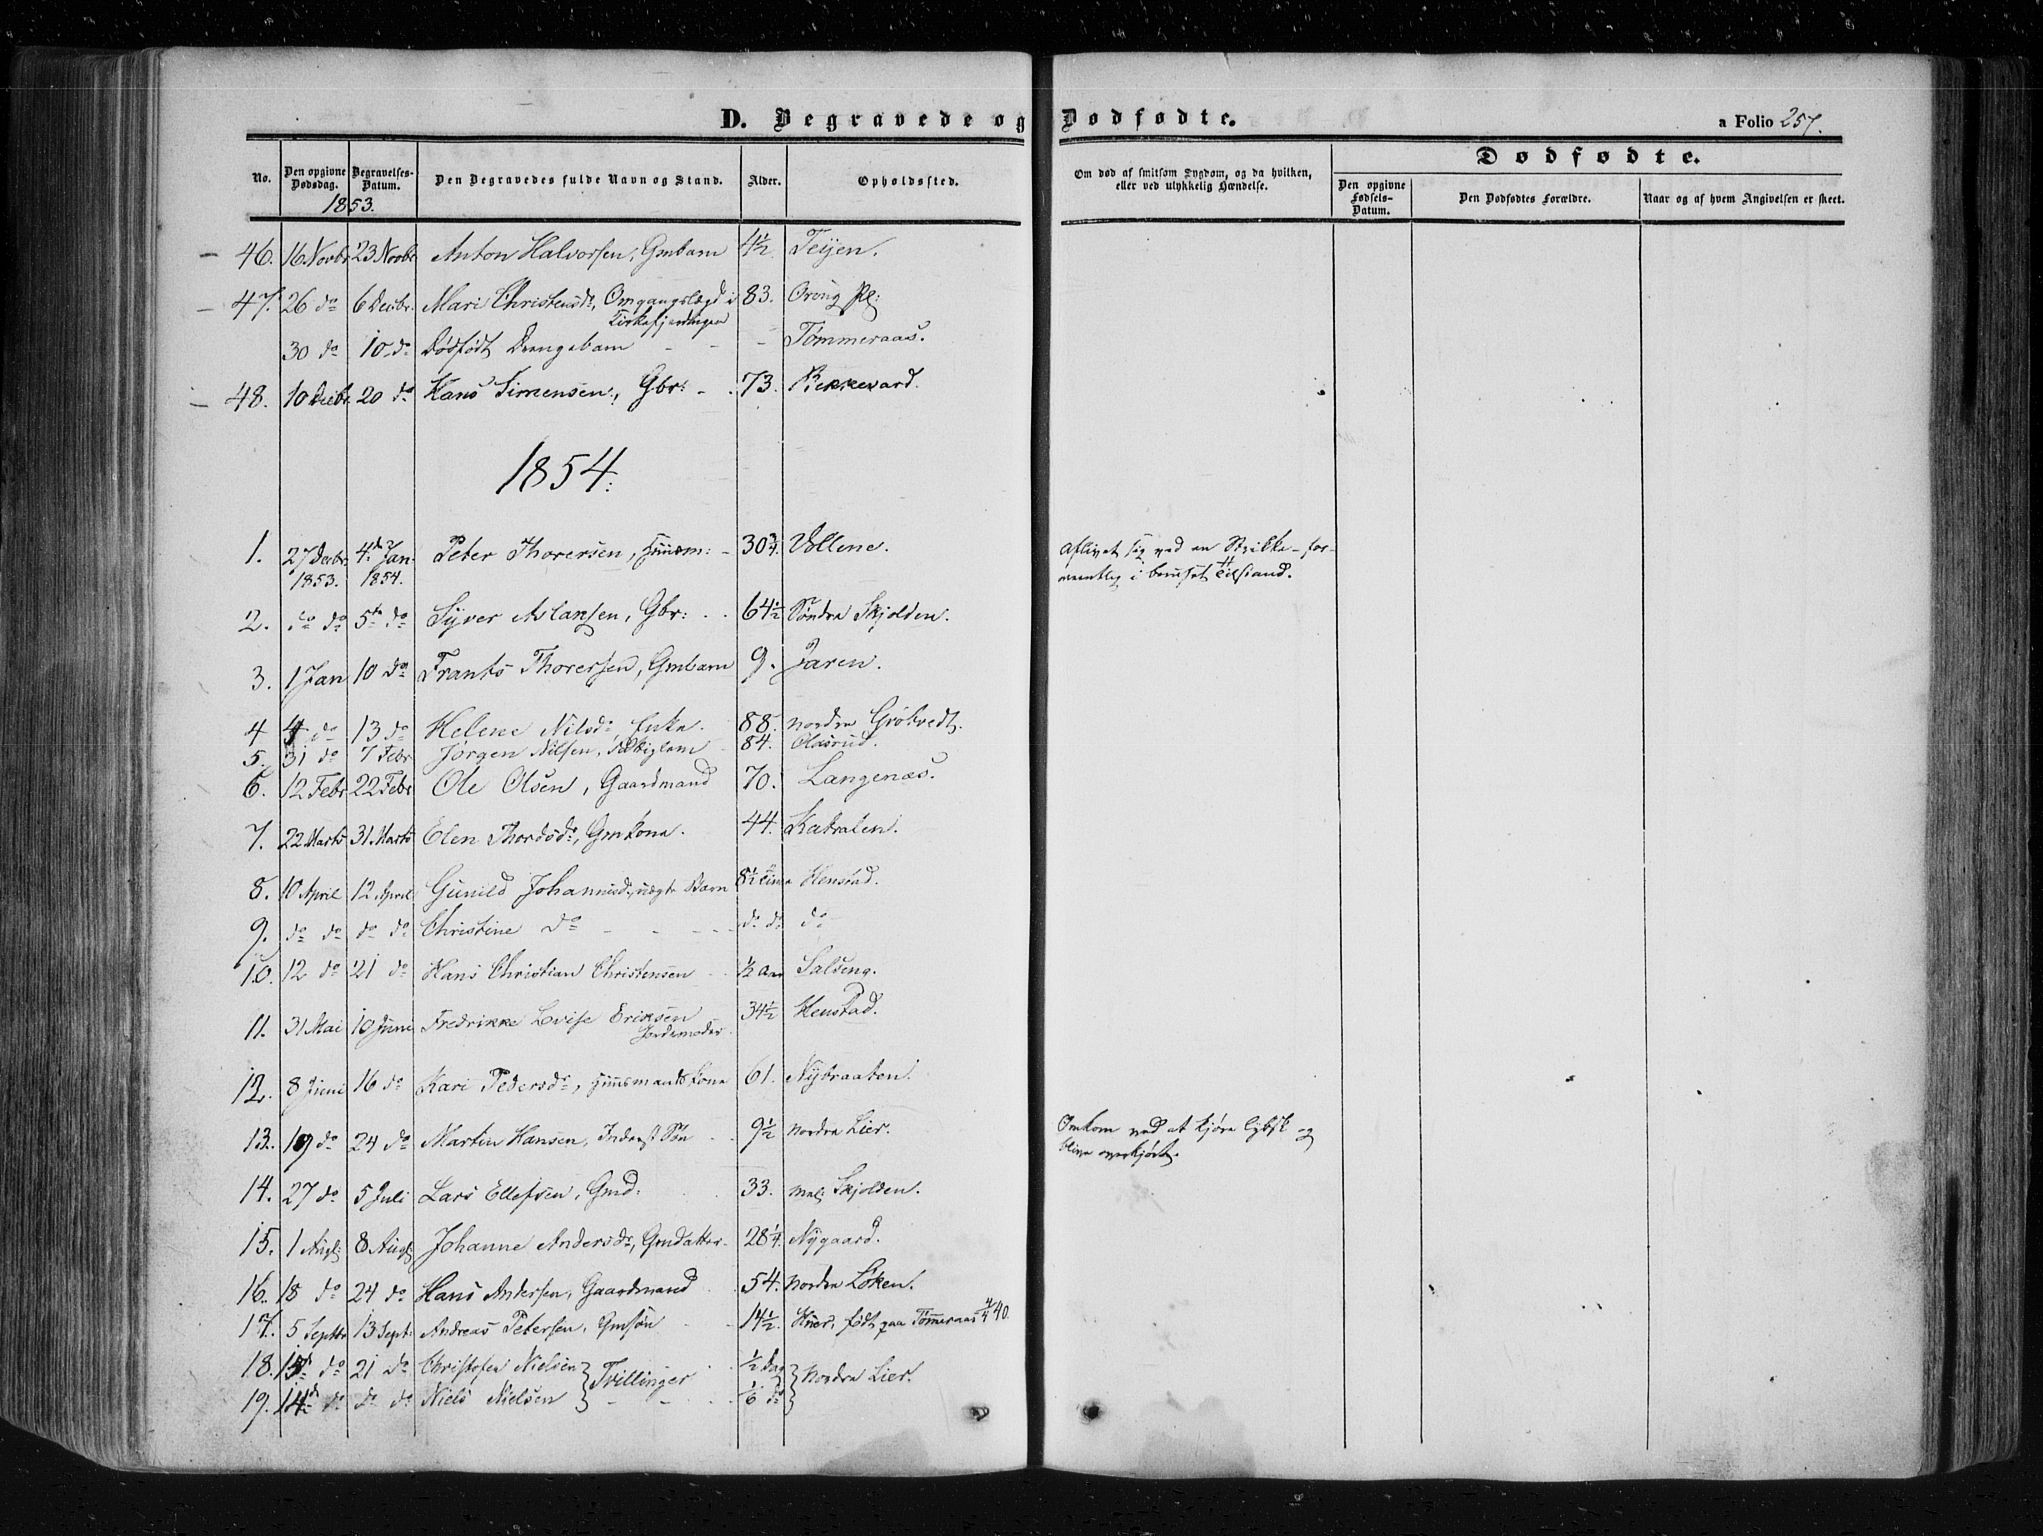 D. Begravede og Dødfødte.
a Folio 257.
No.
Den opgivne Dødsdag.
Begravelses-Datum.
Den Begravedes fulde Navn og Stand.
Alder.
Opholdssted.
Om død af smitsom Sygdom, og da hvilken, eller ved ulykkelig Hændelse.
Dødfødte.
Den opgivne Fødsels-Datum.
Den Dødfødtes Forældre.
Naar og af hvem Angivelsen er skeet.
1853.
46. 16 Novbr 23 Novbr Anton Halvorsen, Gmbarn 4½ Teijen.
47. 26 do 6 Decbr. Mari Christensdr, Omgangslægd i 83. Oreng Pl:
30 do 10 do Dødfødt Drengebarn - - - Tømmeraas.
48. 10 Decbr. 20 do Hans Simensen, Gbr: - 73. Bekkevard.
1854.
1. 27 Decbr. 4d Jan. Peter Thoresen, Huusm: - 30¾ Vollene. Aflivet sig ved en Strikke - for-
1853. 1854. mentlig i beruset Tilstand.
2. do do 5te do Syver Aslansen, Gbr: 64½ Søndre Skjolden.
3. 1 Jan 10 do Frants Thoresen, Gmbarn 9. Jaren.
4 4 do 13 do Helene Nilsdr, Enke. 88. nordre Grøtvedt.
5. 31 do 7 Febr Jørgen Nilsen, Fattiglem 84. Olasrud.
6. 12 Febr 22 Febr Ole Olsen, Gaardmand 70. Langenæs.
7. 22 Marts 31. Marts Elen Thordsdr, Gmkone. 44. Katralen.
8. 10 April 12 April Gunild Johannisdr, uægte Barn 8½ Time Henstad.
9. do do do do Christine do - - - - do do do
10. 12 do 21 do Hans Christian Christensen ½ Aar Salseng.
11. 31 Mai 10 Juni Fredrikke Lovise Eriksen 34½ Henstad.
Jordemoder
12. 8 Juni 16 do Kari Pedersdr, Huusmandskone 61. Nybraaten.
13. 19 do 24 do Martin Hansen, Inderst Søn 9½ nordre Lier. Omkom ved at kjøre og
blive overkjørt.
14. 27 do 5 Juli Lars Ellefsen, Gmd: 33. Skjolden.
15. 1 Augt: 8 Augt: Johanne Andersdr, Gmdatter - 28¼ Nygaard.
16. 18 do 24 do Hans Andersen, Gaardmand 54. nordre Løken.
17. 5 Septbr 13 Sept: Andreas Petersen, Gmsøn - - 14½. født paa Tømmeraas 4/4 40.
18. 15 do 21 do Christofer Nielsen } Tvillinger ½ Dag } nordre Lier.
19. 14d do do do Niels Nielsen - - 1/6 do